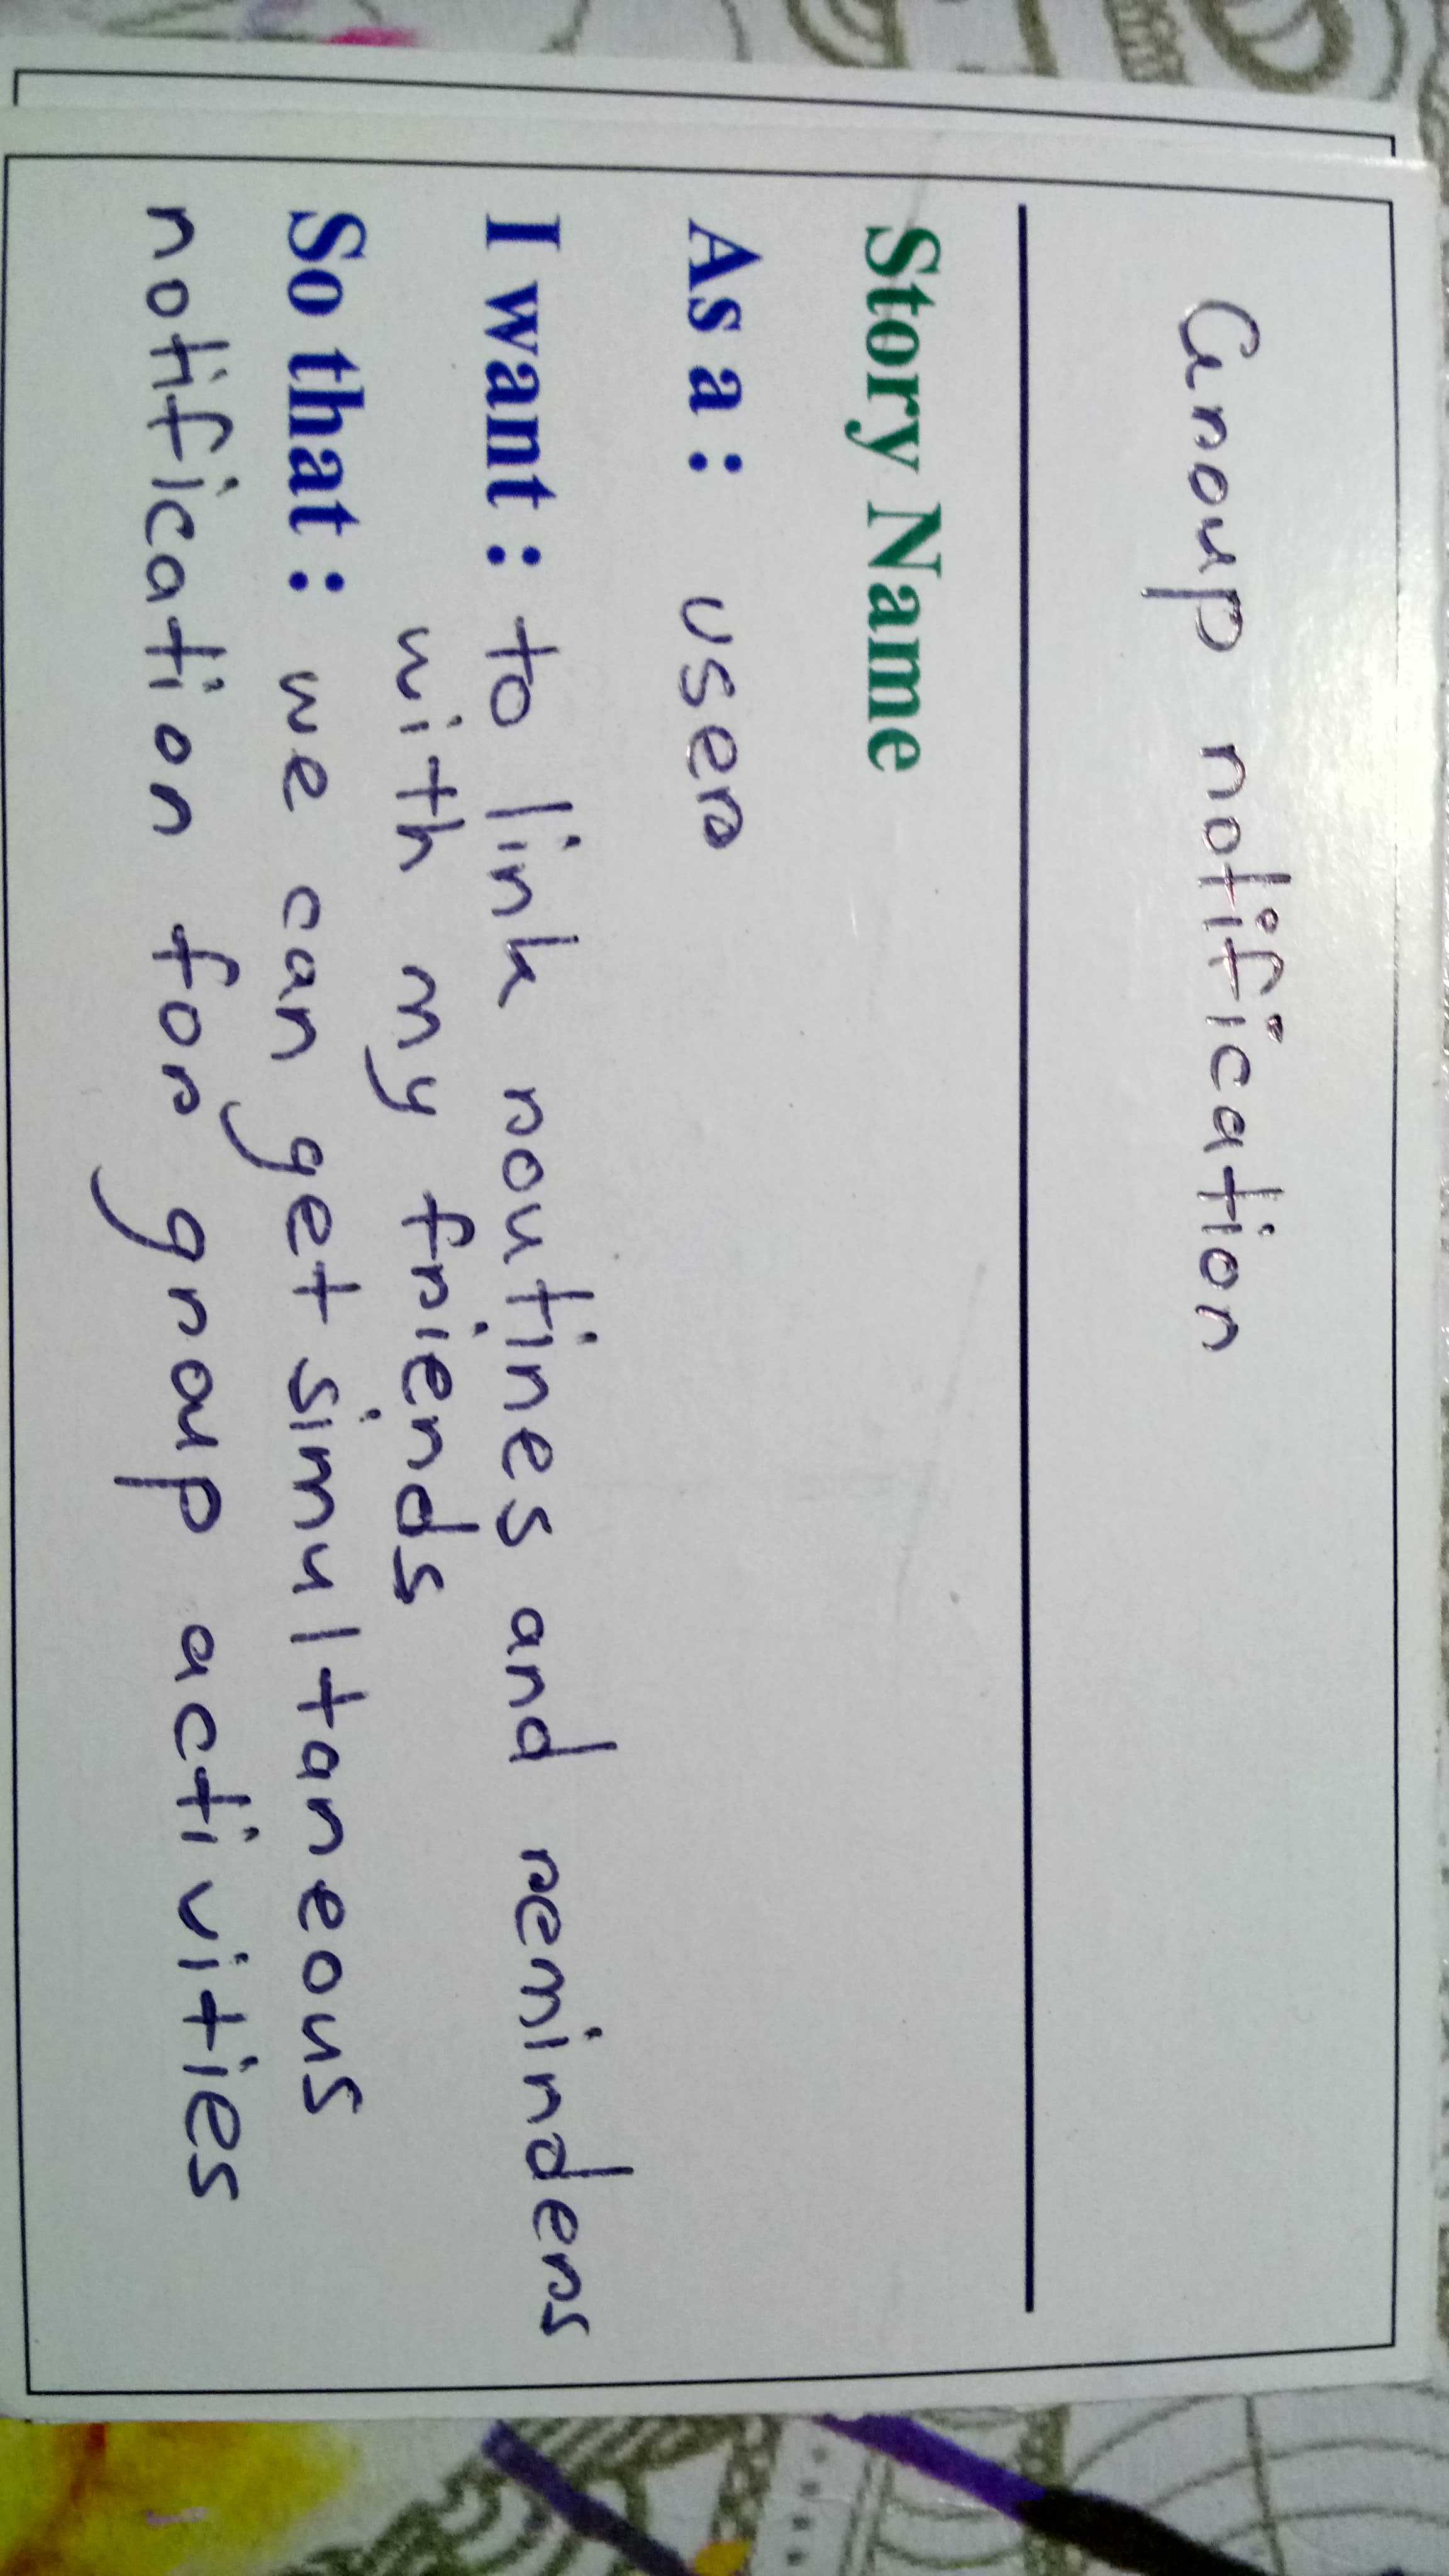 Group notification
Story Name
As a : user
I want : to link routines and reminders
with my friends
So that : we can get simultaneous
notification for group activities